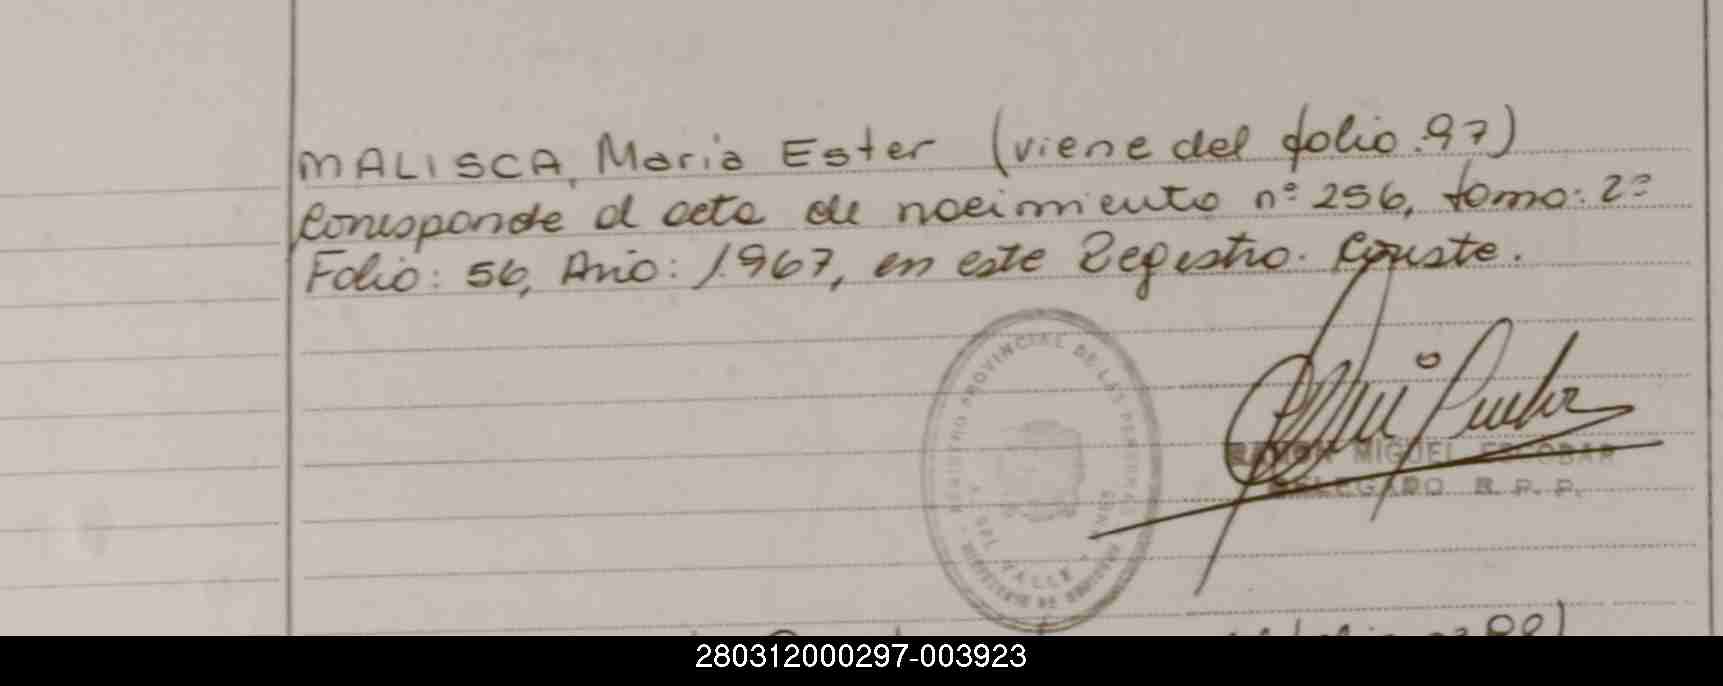 MALISCA, Maria Ester (viene del folio: 97)
Corresponde al acta de nacimiento nº 256, tomo: 2º
Folio: 56, Año: 1.967, en este Registro. Conste.
REGISTRO PROVINCIAL DE LAS PERSONAS
DEL VALLE
RAMON MIGUEL ESCOBAR
DELEGADO R. P. P.
280312000297-003923